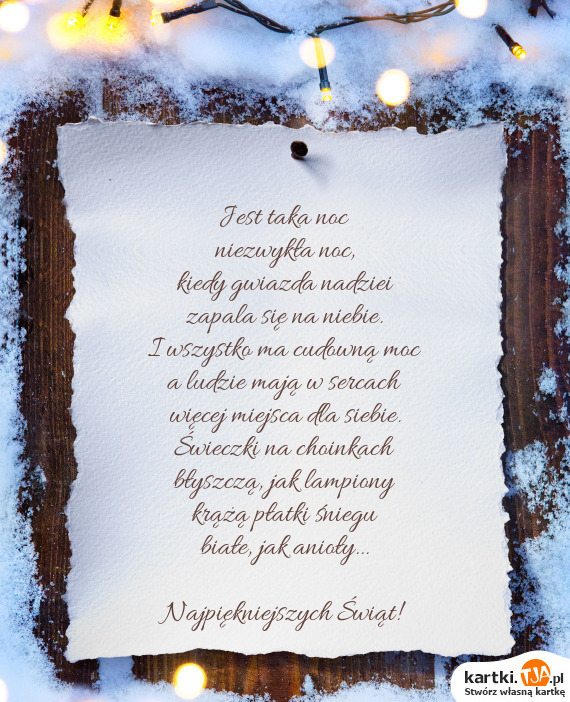 Jest taka noc
niezwykła noc,
kiedy gwiazda nadziei
zapala się na niebie.
I wszystko ma cudowną moc
a ludzie mają w sercach
więcej miejsca dla siebie.
Świeczki na choinkach
błyszczą, jak lampiony
krążą płatki śniegu
białe, jak anioły...
Najpiękniejszych Świąt!
kartki.TJA.pl
Stwórz własną kartkę